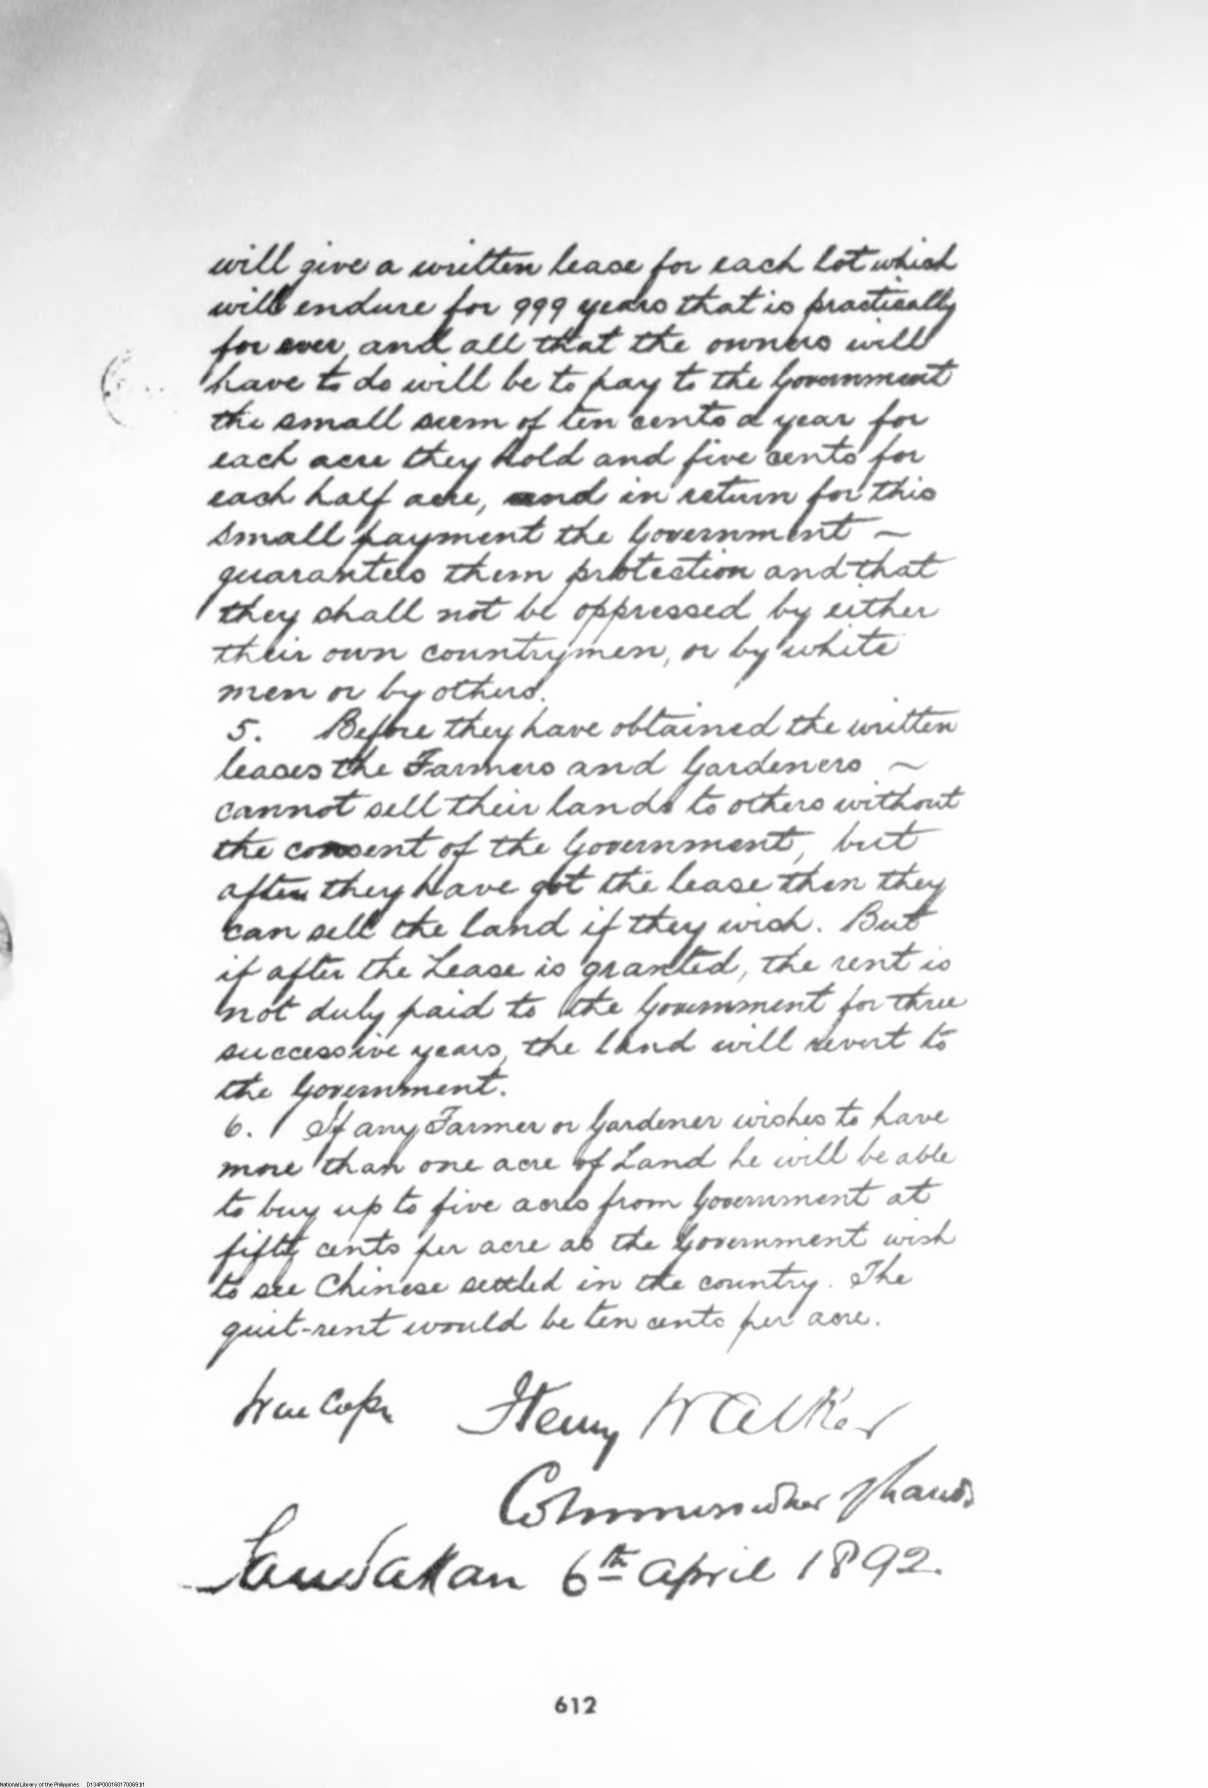 will give a written lease for each lot which
will endure for 999 years that is practically
for ever, and all that the owners will
have to do will be to pay to the Government
the small sum of ten cents a year for
each acre they hold and five cents for
each half acre, and in return for this
small payment the Government ~
guarantees them protection and that
they shall not be oppressed by either
their own countrymen, or by white
men or by others.
5. Before they have obtained the written
leases the Farmers and Gardeners ~
cannot sell their lands to others without
the consent of the Government, but
after they have got the lease then they
can sell the land if they wish. But
if after the Lease is granted, the rent is
not duly paid to the Government for three
successive years, the land will revert to
the Government.
6. If any Farmer or Gardener wishes to have
more than one acre of Land he will be able
to buy up to five acres from Government at
fifty cents per acre as the Government wish
to see Chinese settled in the country. The
quit-rent would be ten cents per acre.
Henry Walker
Commissioner of Lands
Sandakan 6th April 1892.
612
National Library of the Philippines D134P000160170069.tif